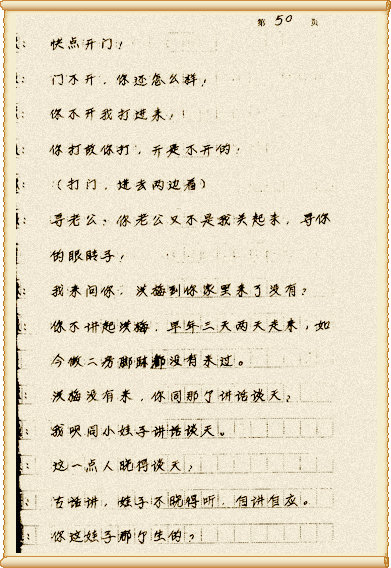 第 50 页
: 快点开门！
: 门不开，你还怎么样！
: 你不开我打进来！
: 你打放你打，开是不开的！
: （打门，进去两边看）
: 寻老公！你老公又不是我关起来，寻你
的眼睛子！
: 我来问你，洪梅到你家里来了没有？
: 你不讲起洪梅，早年三天两天走来，如
今做二房那妹都没有来过。
: 洪梅没有来，你同那个讲话谈天？
: 我呗同小娃子讲话谈天。
: 这一点人晓得谈天！
: 古话讲，娃子不晓得听，自讲自应。
: 你这娃子那个生的？